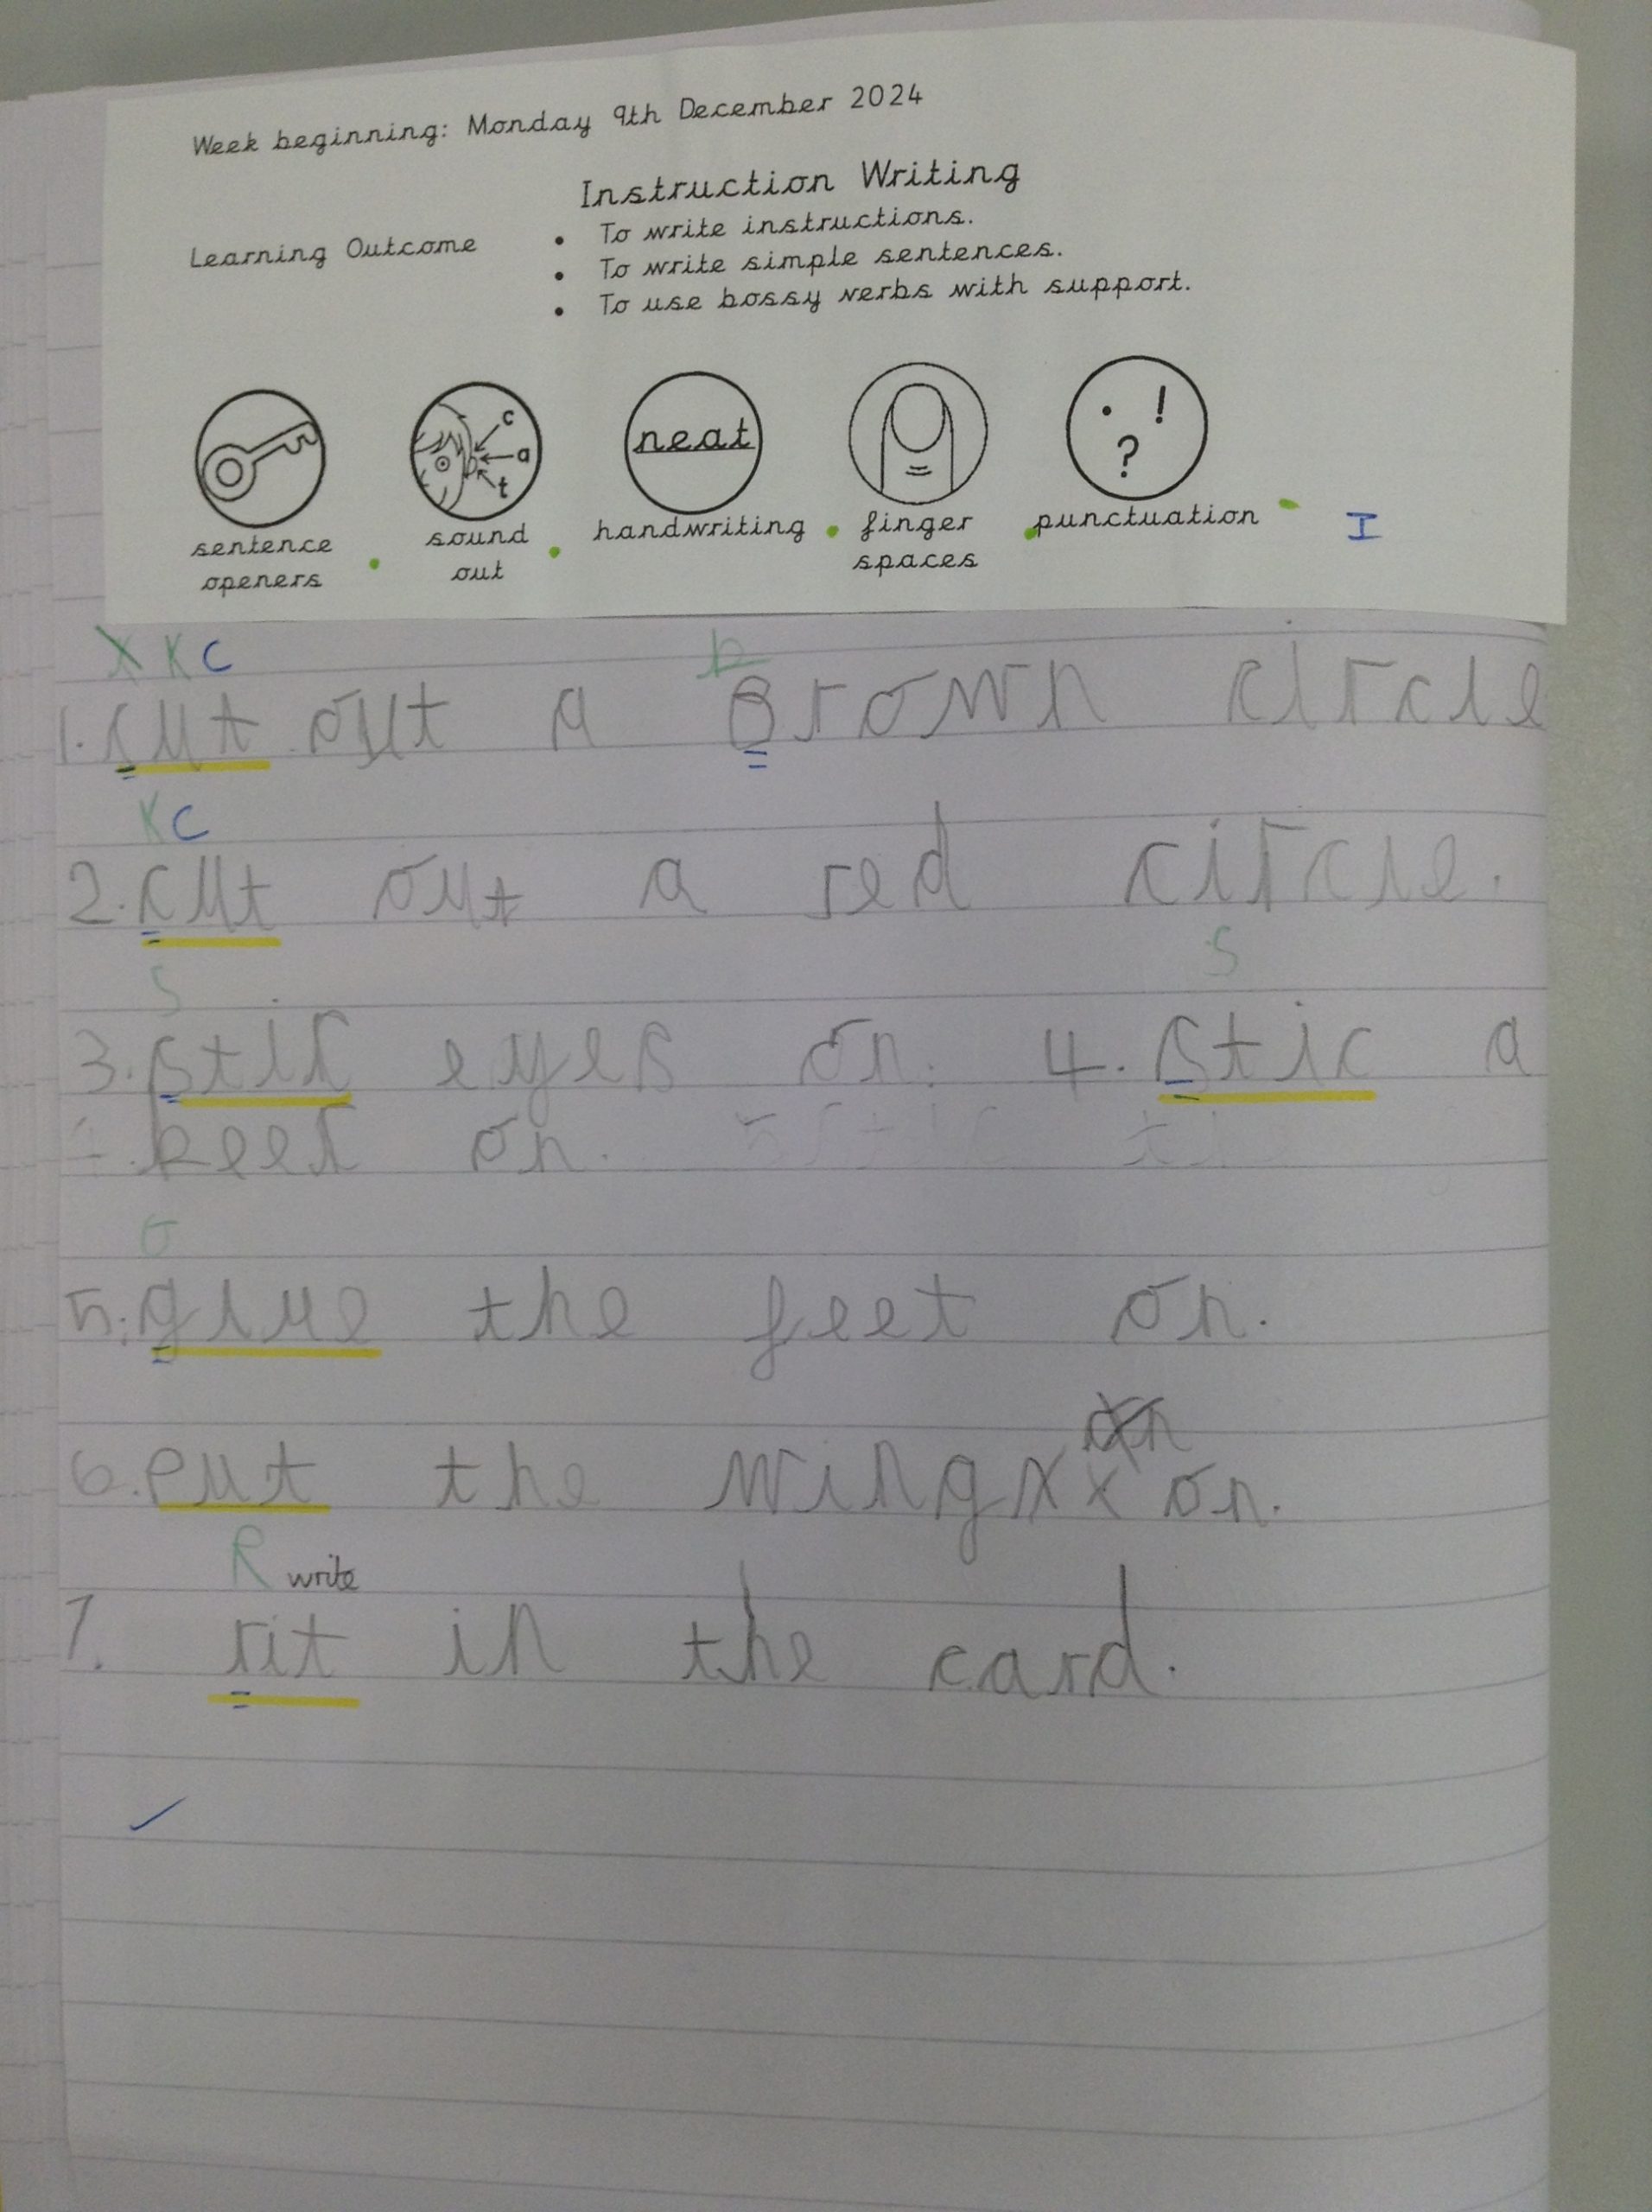 Week beginning: Monday 9th December 2024
Instruction Writing
Learning Outcome
• To write instructions.
• To write simple sentences.
• To use bossy verbs with support.
c
a
t
neat
. !
?
sentence openers
sound out
handwriting
finger spaces
punctuation
I
K C
b
1. cut out a Brown circle
K C
2. cut out a red circle.
S
S
3. stik eyes on. 4. stic a
beek on.
G
5. glue the feet on.
6. Put the wing on.
R write
7. rit in the card.